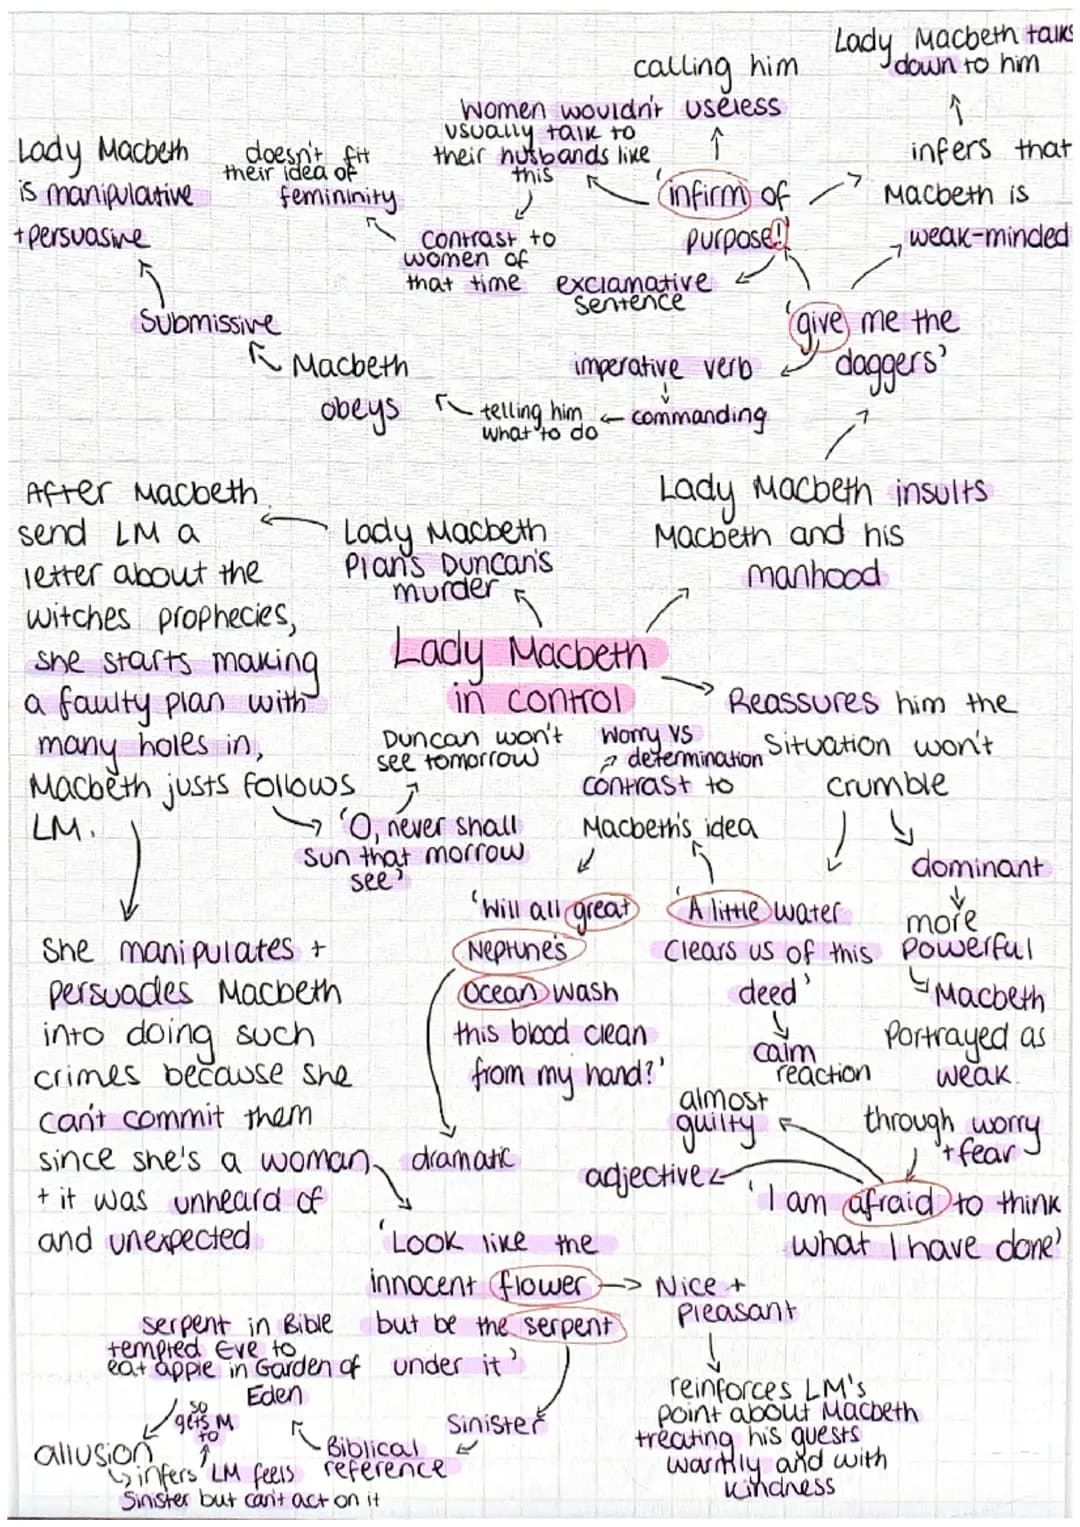 Lady Macbeth talks
down to him
calling him
useless
Women wouldn't
usually talk to
their husbands like
this
infers that
Macbeth is
weak-minded
Lady Macbeth
is manipulative
+ persuasive
doesn't fit
their idea of
femininity
'infirm of
purpose!
contrast to
women of
that time
exclamative
sentence
Submissive
'give me the
daggers'
Macbeth
obeys
imperative verb
telling him
what to do
commanding
After Macbeth
send LM a
letter about the
witches prophecies,
she starts making
a faulty plan with
many holes in,
Macbeth justs follows
LM.
Lady Macbeth
Plans Duncan's
murder
Lady Macbeth insults
Macbeth and his
manhood
Lady Macbeth
in control
Reassures him the
situation won't
crumble
Duncan won't
see tomorrow
Worry vs
determination
contrast to
Macbeth's idea
'O, never shall
sun that morrow
see'
dominant
more
powerful
Macbeth
portrayed as
weak.
'Will all great
Neptune's
Ocean wash
this blood clean
from my hand?'
'A little water
clears us of this
deed'
calm
reaction
She manipulates +
persuades Macbeth
into doing such
crimes because she
can't commit them
since she's a woman
+ it was unheard of
and unexpected
dramatic
almost
guilty
adjective
through worry
+ fear
'I am afraid to think
what I have done'
'Look like the
innocent flower
but be the serpent
under it'
Nice +
pleasant
reinforces LM's
point about Macbeth
treating his guests
warmly and with
kindness
serpent in Bible
tempted Eve to
eat apple in Garden of
Eden
sinister
Biblical
reference
so
gets M
to
allusion
infers LM feels
sinister but can't act on it